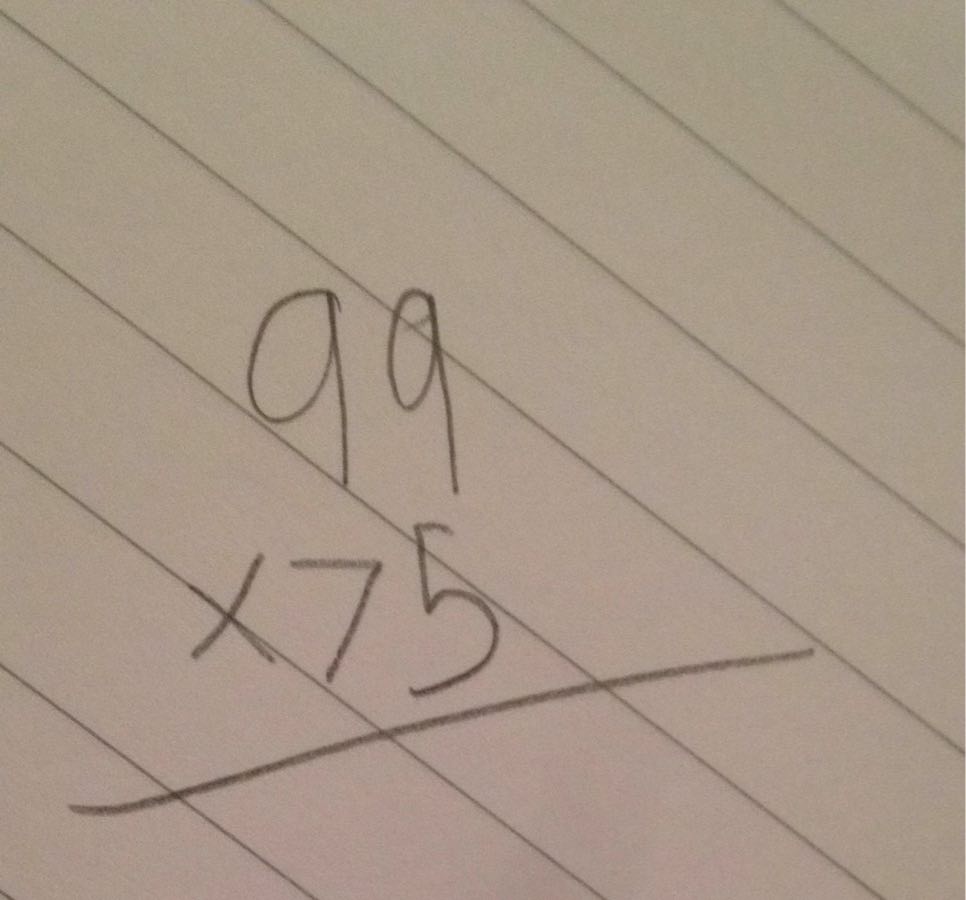 99
×75